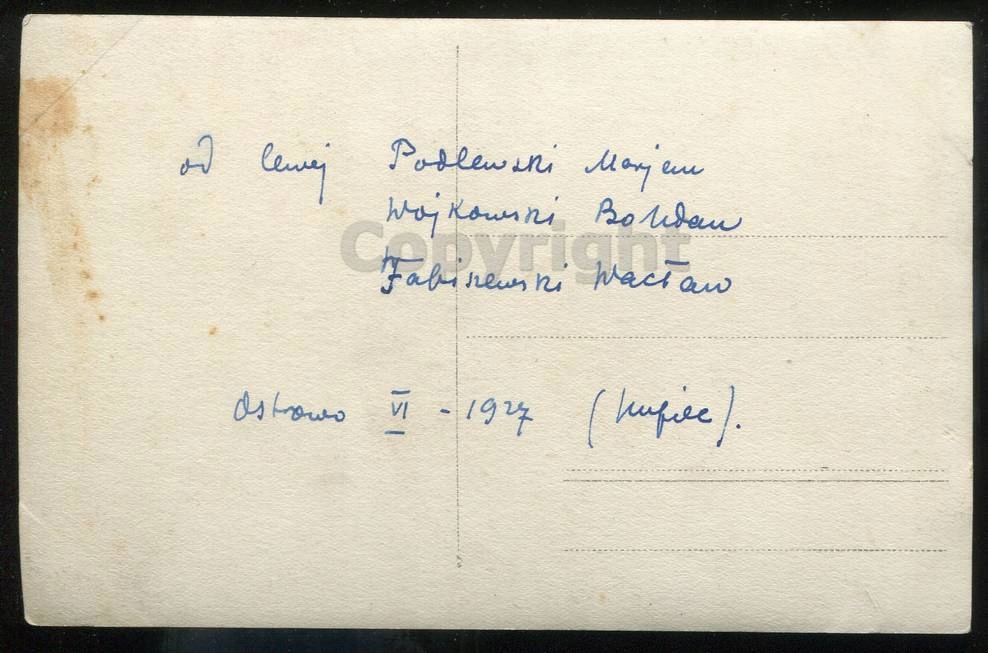 od lewej Podlewski Marjan
Wojkowski Bohdan
Copyright
Fabiszewski Wacław
Ostrowo VI - 1927 (hufiec).